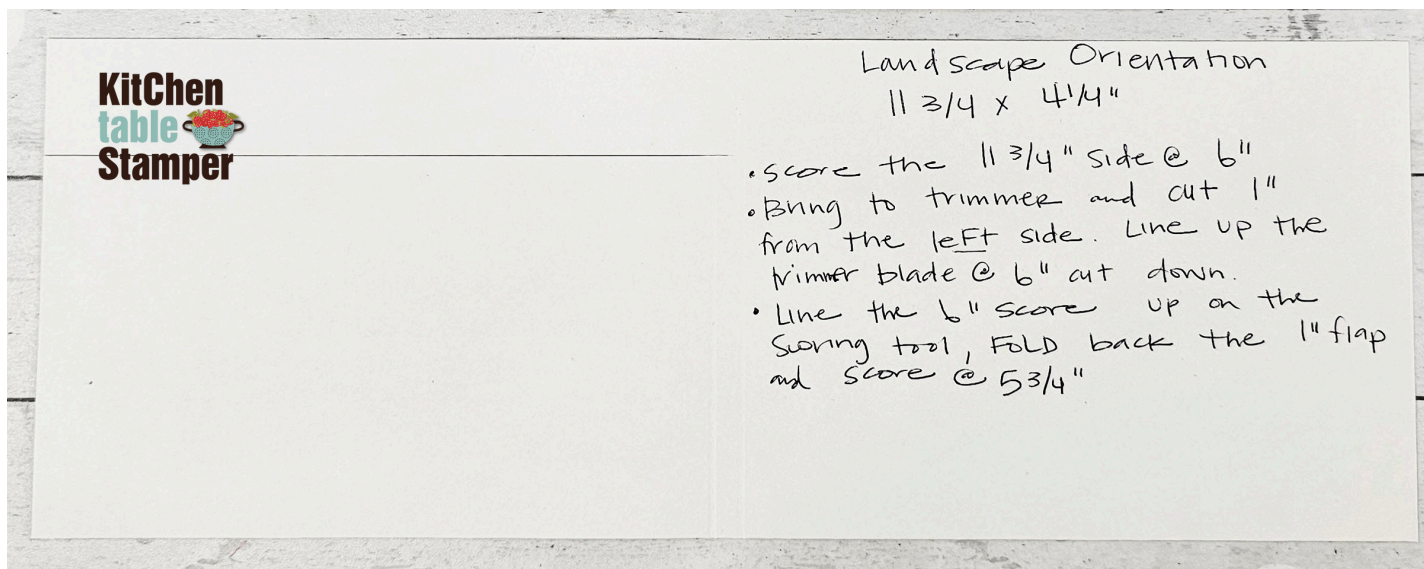 KitChen
table
Stamper
Landscape Orientation
11 3/4 x 4 1/4"
• Score the 11 3/4" side @ 6"
• Bring to trimmer and cut 1"
from the leFt side. Line up the
trimmer blade @ 6" cut down.
• Line the 6" score up on the
scoring tool, FOLD back the 1" flap
and score @ 5 3/4"